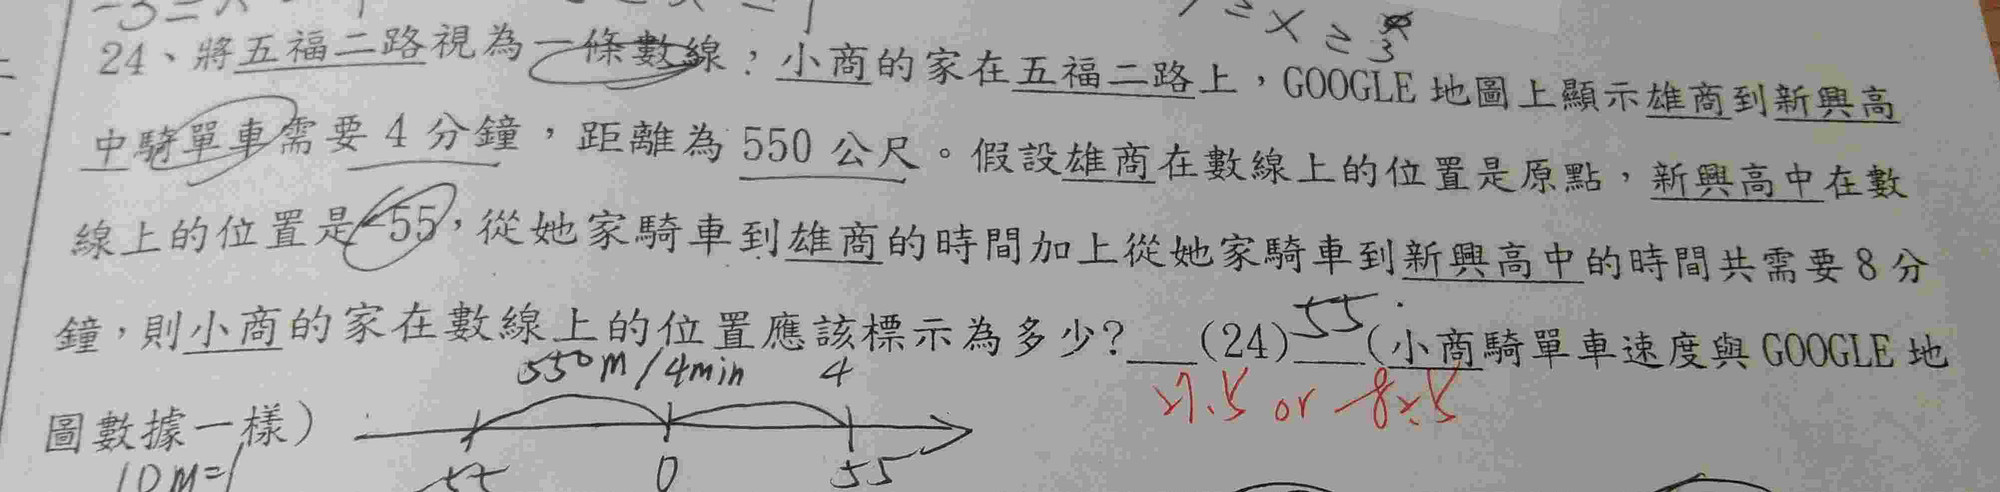 24、將五福二路視為一條數線，小商的家在五福二路上，GOOGLE 地圖上顯示雄商到新興高
中騎單車需要 4 分鐘，距離為 550 公尺。假設雄商在數線上的位置是原點，新興高中在數
線上的位置是-55，從她家騎車到雄商的時間加上從她家騎車到新興高中的時間共需要 8 分
鐘，則小商的家在數線上的位置應該標示為多少?___(24)___(小商騎單車速度與 GOOGLE 地
55
550m/4min 4
27.5 or -82.5
圖數據一樣)
10M=1
-55 0 55